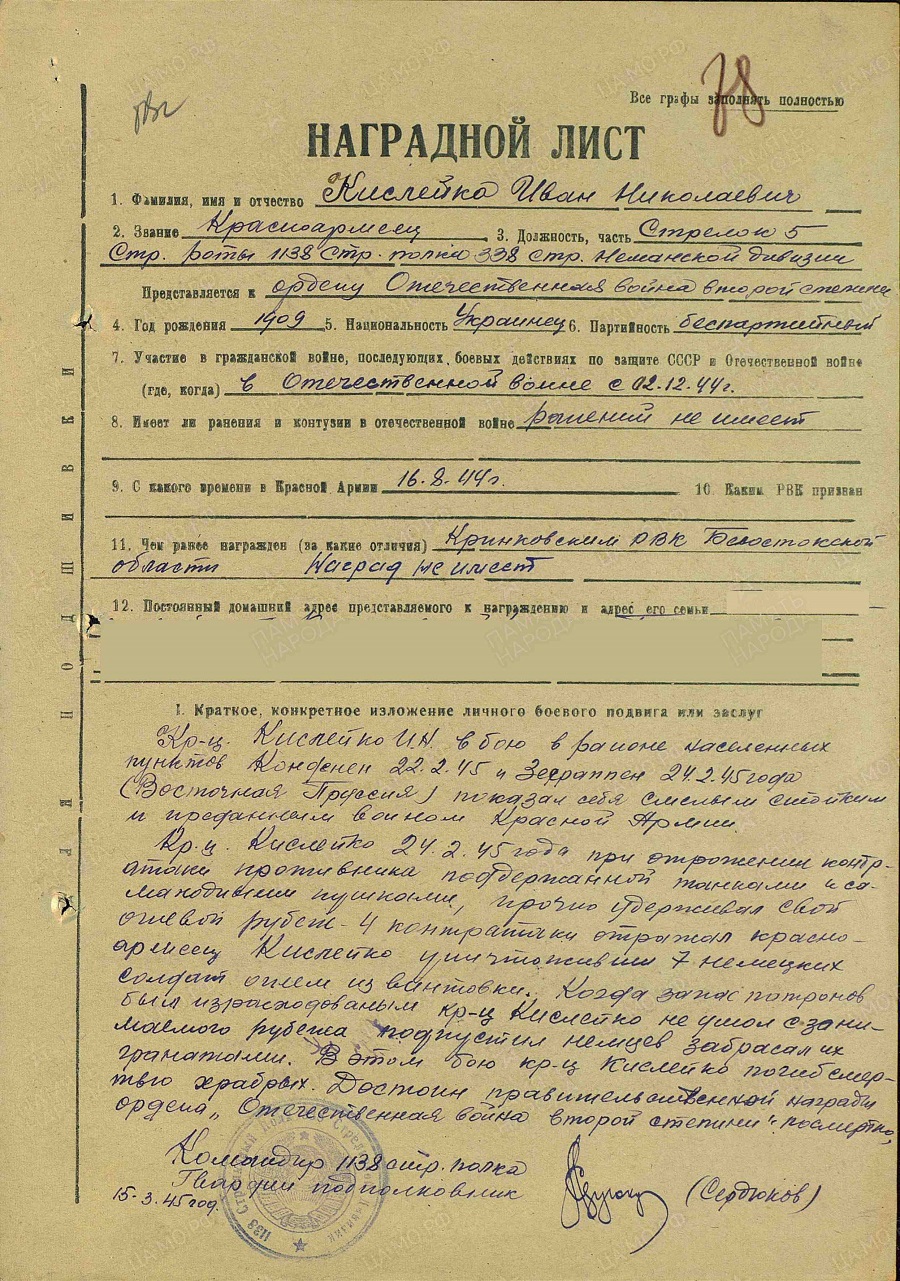 78
Все графы заполнять полностью
НАГРАДНОЙ ЛИСТ
1. Фамилия, имя и отчество Кислейко Иван Николаевич
2. Звание Красноармеец 3. Должность, часть Стрелок 5
Стр. роты 1138 стр. полка 338 стр. Неманской дивизии
Представляется к ордену Отечественная война второй степени
4. Год рождения 1909 5. Национальность Украинец 6. Партийность беспартийный
7. Участие в гражданской войне, последующих боевых действиях по защите СССР и Отечественной войне
(где, когда) в Отечественной войне с 02.12.44г.
8. Имеет ли ранения и контузии в отечественной войне ранений не имеет
9. С какого времени в Красной Армии 16.8.44г. 10. Каким РВК призван
11. Чем ранее награжден (за какие отличия) Кринковским РВК Белостокской
области Наград не имеет
12. Постоянный домашний адрес представляемого к награждению и адрес его семьи
I. Краткое, конкретное изложение личного боевого подвига или заслуг
Кр-ц. Кислейко И.Н. в бою в районе населенных
пунктов Конденен 22.2.45 и Зераппен 24.2.45 года
(Восточная Пруссия) показал себя смелым стойким
и преданным воином Красной Армии.
Кр.ц. Кислейко 24.2.45 года при отрожении контр-
атаки противника поддержанной танками и са-
маходными пушками, прочно удерживал свой
огневой рубеж - 4 контратаки отражал красно-
армеец Кислейко уничтоживши 7 немецких
солдат огнем из винтовки. Когда запас патронов
был израсходованым кр-ц Кислейко не ушол с зани-
маемого рубежа подпустил немцев забрасал их
гранатами. В этом бою кр-ц Кислейко погиб смер-
тью храбрых. Достоин правительственной награды
ордена „Отечественная война второй степини" посмертно,
Командир 1138 стр. полка
Гвардии подполковник (Сердюков)
15-3.45 год.
ПОДШИВКИ